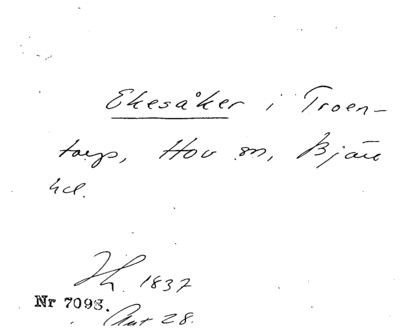 Ekesåker i Troen-
torp, Hov sn, Bjäre
hd.
1837
Nr 7093.
Akt 28.